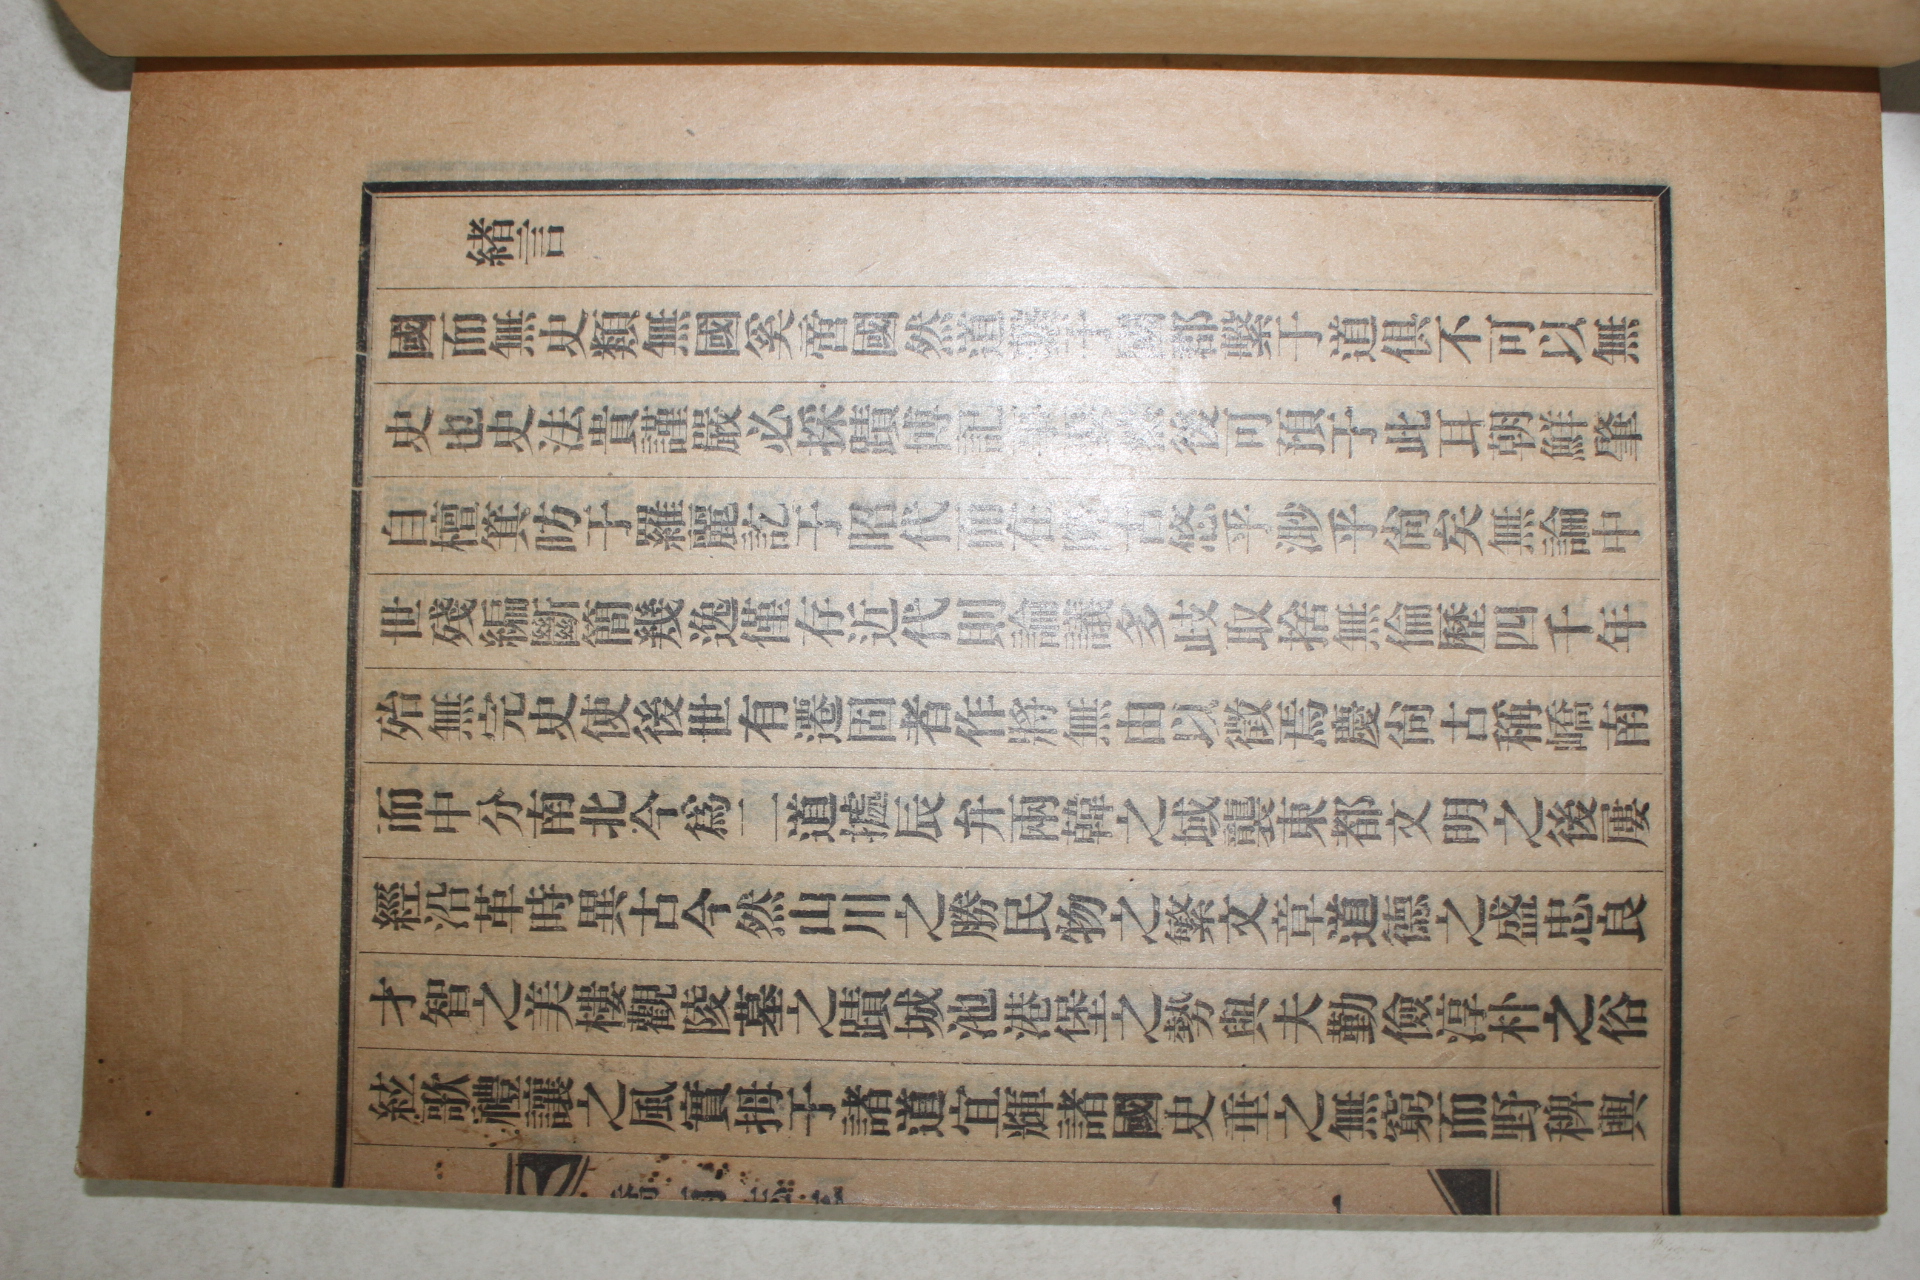 緖言
國而無史類無國奚啻國然道繫于國郡繫于道俱不可以無
史也史法貴謹嚴必採蹟博記事要然後可預于此耳朝鮮肇
自檀箕昉于羅麗訖于昭代而在隆古悠乎渺乎尙矣無論中
世殘編斷簡幾逸僅存近代則論議多歧取捨無倫歷四千年
殆無完史使後世有遷固者作將無由以徵焉慶尙古稱嶠南
而中分南北今爲二道摅辰弁兩韓之域襲東都文明之後屢
經沿革時異古今然山川之勝民物之繁文章道德之盛忠良
才智之美樓觀陵墓之蹟城池港堡之勢與夫勤儉淳朴之俗
絃歌禮讓之風實拇于諸道宜輝諸國史垂之無窮而野稗輿
嶠南誌
一